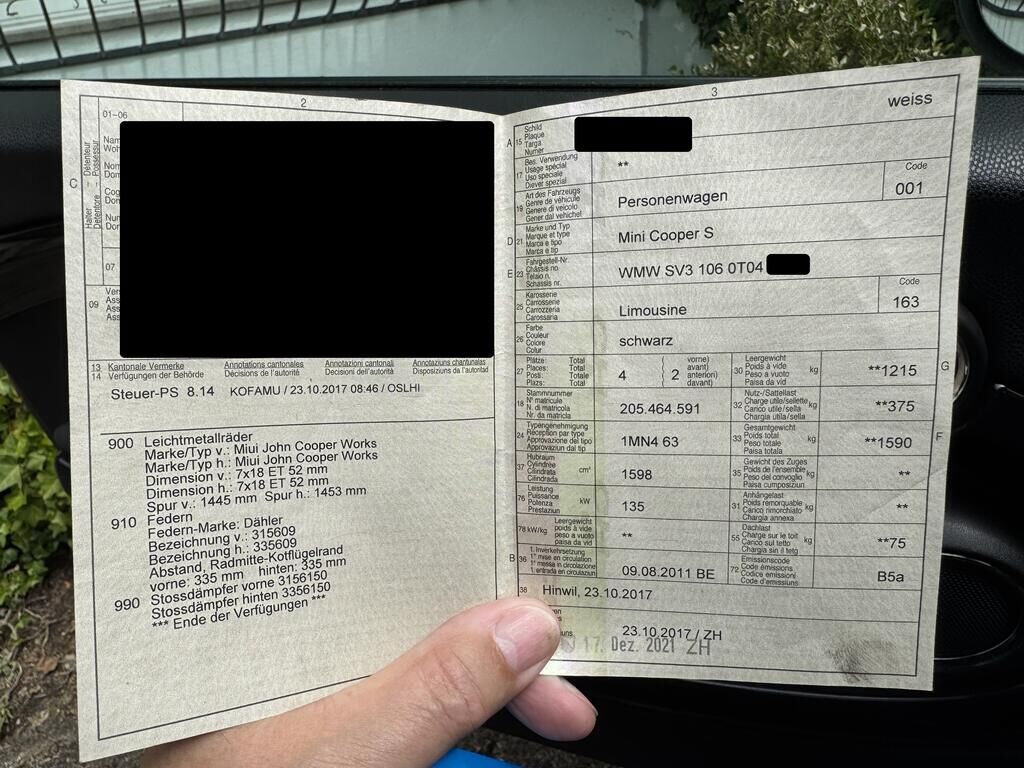 2
01-06
Détenteur
Possessur
Halter
Detentore
C
07
09
13 Kantonale Vermerke Annotations cantonales Annotazioni cantonali Annotaziuns chantunalas
14 Verfügungen der Behörde Décisions de l'autorité Decisioni dell'autorità Disposiziuns da l'autoritad
Steuer-PS 8.14 KOFAMU / 23.10.2017 08:46 / OSLHI
900 Leichtmetallräder
Marke/Typ v.: Miui John Cooper Works
Marke/Typ h.: Miui John Cooper Works
Dimension v.: 7x18 ET 52 mm
Dimension h.: 7x18 ET 52 mm
Spur v.: 1445 mm Spur h.: 1453 mm
910 Federn
Federn-Marke: Dähler
Bezeichnung v.: 315609
Bezeichnung h.: 335609
Abstand, Radmitte-Kotflügelrand
vorne: 335 mm hinten: 335 mm
990 Stossdämpfer vorne 3156150
Stossdämpfer hinten 3356150
*** Ende der Verfügungen ***
3
weiss
A 15 Schild
Plaque
Targa
Numer
17 Bes. Verwendung
Usage spécial
Uso speciale
Diever spezial
**
19 Art des Fahrzeugs
Genre de véhicule
Genere di veicolo
Gener dal vehichel
Personenwagen
Code
001
D 21 Marke und Typ
Marque et type
Marca e tipo
Marca e tip
Mini Cooper S
E 23 Fahrgestell-Nr.
Châssis no
Telaio n.
Schassis nr.
WMW SV3 106 0T04
25 Karosserie
Carrosserie
Carrozzeria
Carossaria
Limousine
Code
163
26 Farbe
Couleur
Colore
Colur
schwarz
27 Plätze: Total
Places: Total
Posti: Totale
Plazs: Total
4
2
vorne)
avant)
anteriori)
davant)
30 Leergewicht
Poids à vide
Peso a vuoto
Paisa da vid
kg
**1215
G
18 Stammnummer
N° matricule
N. di matricola
Nr. da matricla
205.464.591
32 Nutz-/Sattellast
Charge utile/sellette
Carico utile/sella
Chargia utila/sella
kg
**375
24 Typengenehmigung
Réception par type
Approvazione del tipo
Approvaziun dal tip
1MN4 63
33 Gesamtgewicht
Poids total
Peso totale
Paisa totala
kg
**1590
F
37 Hubraum
Cylindrée
Cilindrata
Cilindrada
cm³
1598
35 Gewicht des Zuges
Poids de l'ensemble
Peso del convoglio
Paisa cumposiziun
kg
**
76 Leistung
Puissance
Potenza
Prestaziun
kW
135
31 Anhängelast
Poids remorquable
Carico rimorchiato
Chargia annexa
kg
**
78 kW/kg
Leergewicht
poids à vide
peso a vuoto
paisa da vid
**
55 Dachlast
Charge sur le toit
Carico sul tetto
Chargia sin il tetg
kg
**75
B 36 1. Inverkehrsetzung
1re mise en circulation
1a messa in circolazione
1. entrada en circulaziun
09.08.2011 BE
72 Emissionscode
Code émissions
Codice emissioni
Code d'emissiuns
B5a
38 Hinwil, 23.10.2017
23.10.2017 / ZH
17. Dez. 2021 ZH